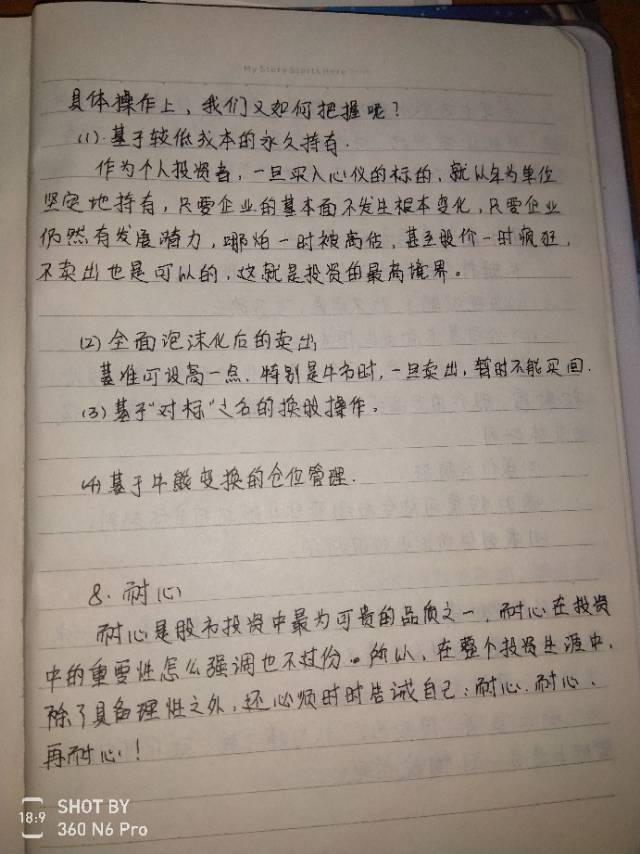 My Story Starts Here
具体操作上，我们又如何把握呢？
(1).基于较低成本的永久持有.
作为个人投资者，一旦买入心仪的标的，就以年为单位
坚定地持有，只要企业的基本面不发生根本变化，只要企业
仍然有发展潜力，哪怕一时被高估，甚至股价一时疯狂，
不卖出也是可以的，这就是投资的最高境界。
(2)全面泡沫化后的卖出
基准可设高一点.特别是牛市时,一旦卖出,暂时不能买回.
(3)基于“对标”之名的换股操作。
(4)基于牛熊变换的仓位管理.
8.耐心
耐心是股市投资中最为可贵的品质之一,耐心在投资
中的重要性怎么强调也不过份。所以,在整个投资生涯中,
除了具备理性之外,还必须时时告诫自己:耐心.耐心.
再耐心!
18:9 SHOT BY
360 N6 Pro